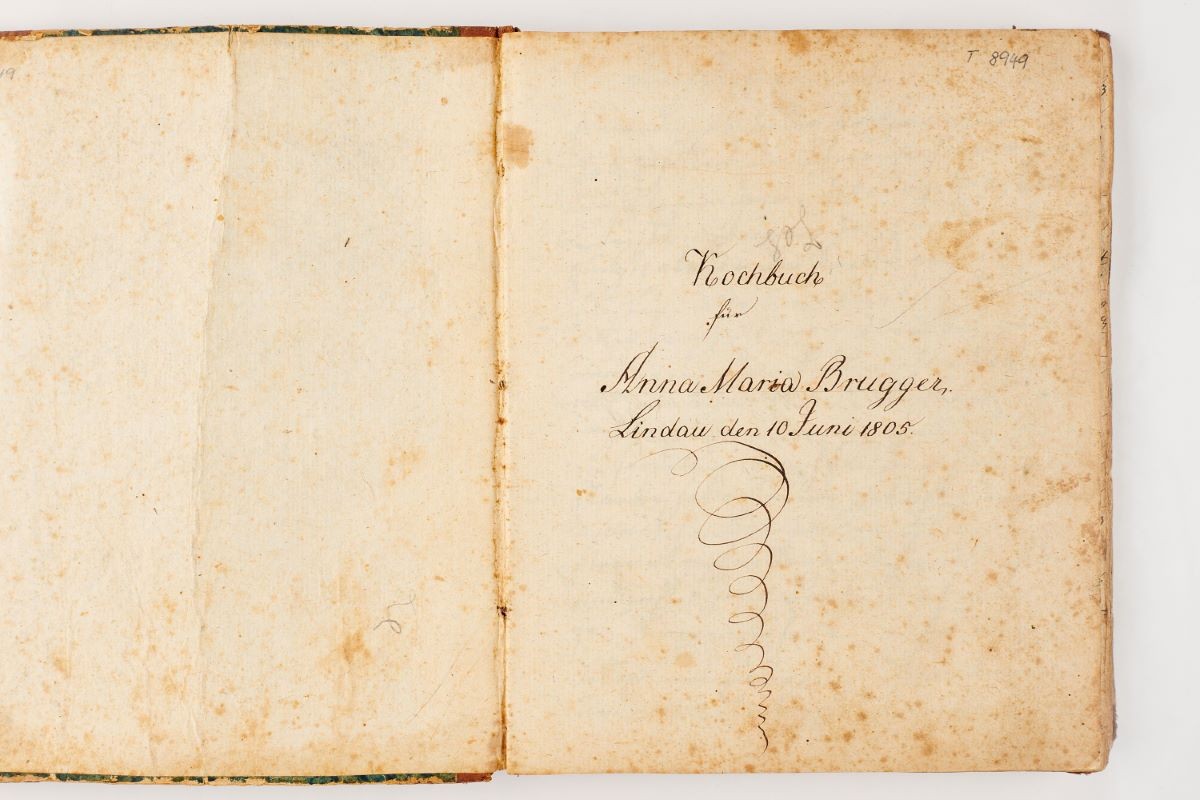 T 8949
Kochbuch
für
Anna Maria Brugger,
Lindau den 10 Juni 1805.